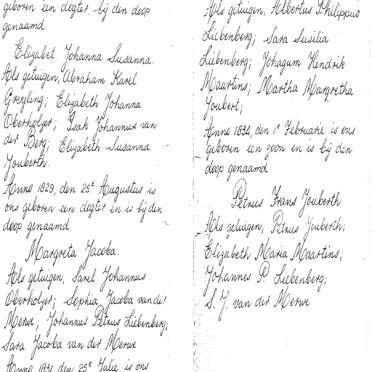 geboren een dogter bij den doop
genaamd
Elizabet Johanna Susanna.
Als getuigen, Abraham Karel
Greyling; Elizabeth Johanna
Oberholzer; Isak Johannus van
der Berg; Elizabeth Susanna
Jouberth.
Anno 1829, den 25e Augustus is
ons geboren een dogter en is bij den
doop genaamd
Margreta Jacoba.
Als getuigen, Sarel Johannus
Oberholzer; Sophia Jacoba van der
Merwe; Johannus Petrus Liebenberg;
Sara Jacoba van der Merwe
Anno 1831 den 25e Julie is ons
Als getuigen, Albertus Philippus
Liebenberg; Sara Susilia
Liebenberg; Johagum Hendrik
Maartins; Martha Margretha
Joubert;
Anno 1834, den 1e Februarie is ons
geboren een zoon en is bij den
doop genaamd
Petrus Frans Jouberth
Als getuigen, Petrus Jouberth;
Elizabeth Maria Maartins;
Johannes P. Liebenberg;
S. J. van der Merwe